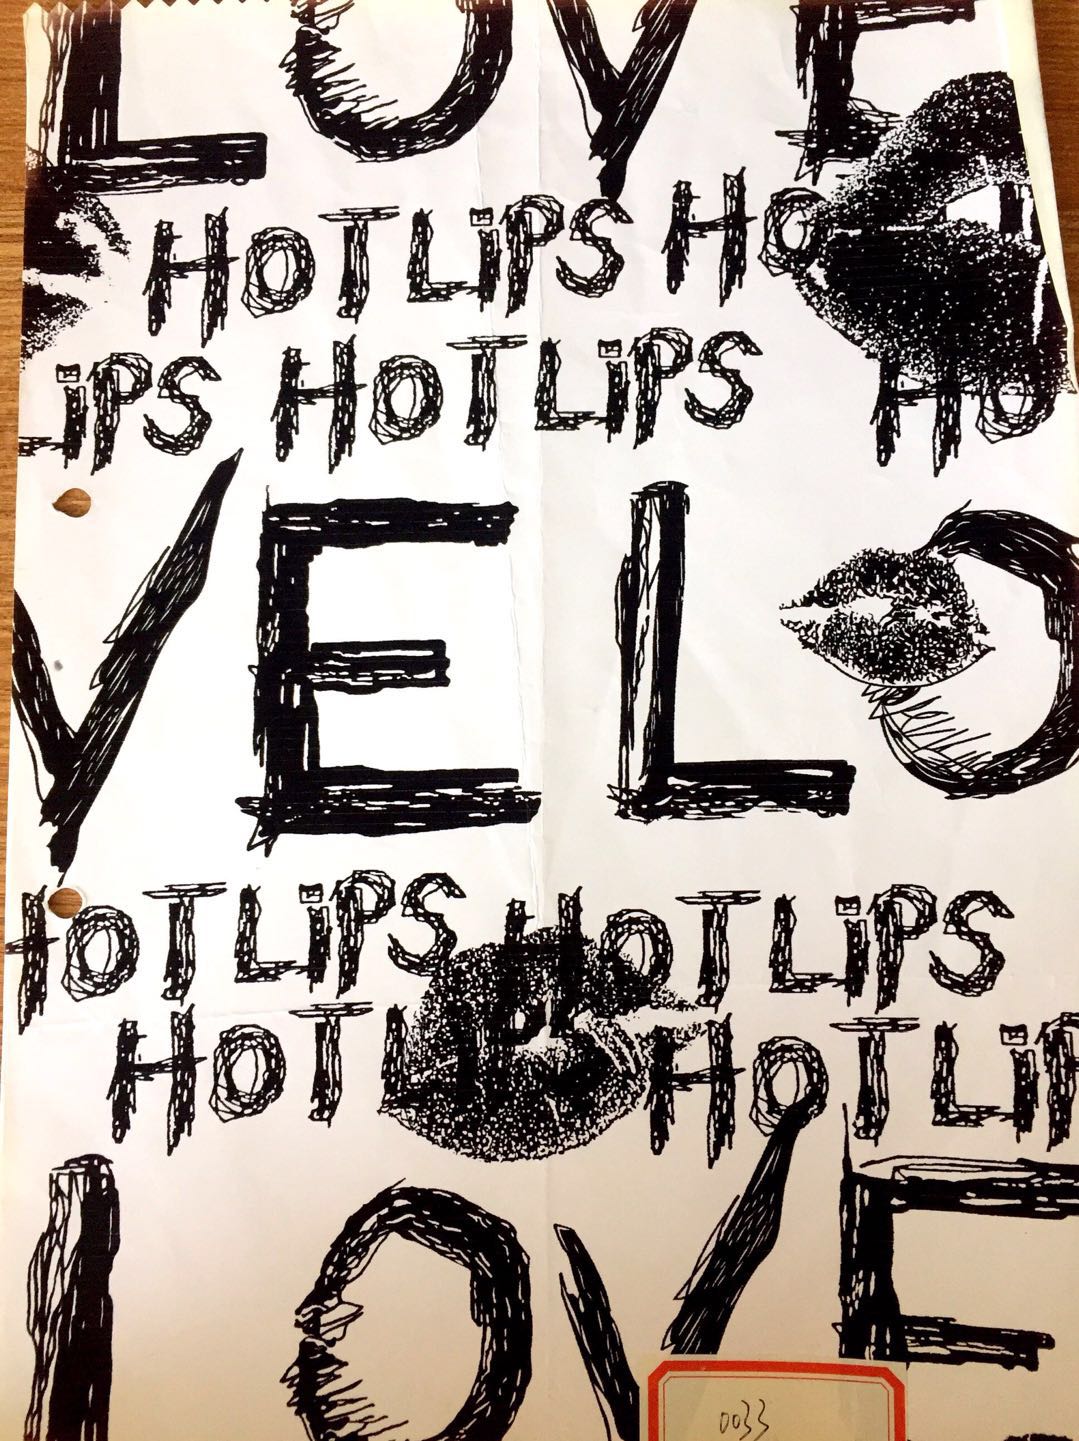 LOVE
HOTLiPS HO
LiPS HOTLiPS HO
VE LO
HOTLiPS HOTLiPS
HOTLi HOTLiP
LOVE
0033